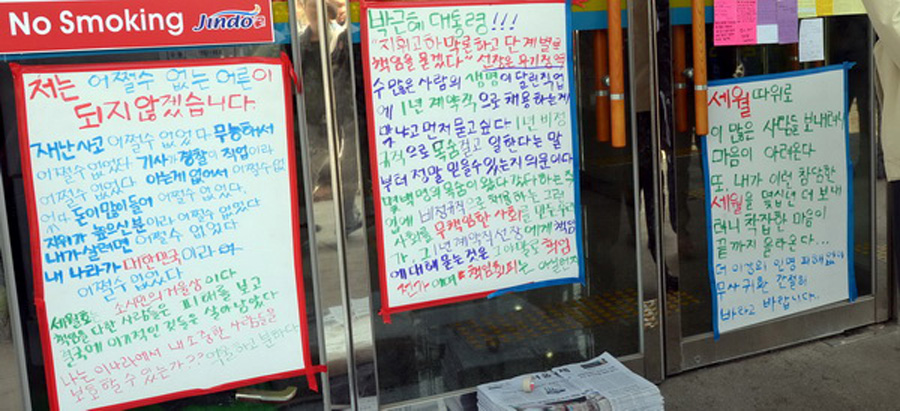 No Smoking Jindo군
저는 어쩔수 없는 어른이
되지않겠습니다.
재난사고 어쩔수 없었다 무능해서
어쩔수없었다 기사가 경찰이 직업이라
어쩔수 없었다 아는게 없어서 어쩔수없
었다 돈이많이들어 어쩔수 없었다,
지위가 높으신분이라 어쩔수 없었다
내가살려면 어쩔수 없었다
내 나라가 대한민국이라서
어쩔수 없었다
소시민의 거울상이다
세월호는 피해를 보고
책임을 다한 사람들은
결국에 이기적인 것들을 살아남았다
나는 이나라에서 내 소중한 사람들을
보호할 수 있는가?? 억울하고 분하다
박근혜 대통령!!!
"지휘고하 막론하고 단계별로
책임을 묻겠다" 선장은 무기징역
수 많은 사람의 생명이 달린직업
에 1년 계약직으로 채용하는게
맞냐고 먼저 묻고싶다 1년 비정
규직으로 목숨걸고 일한다는 말
부터 정말 믿을수 있는지 의문이다
몇백명의 목숨이 왔다갔다하는 직
업에 비정규직으로 채용하는 그런
사회를 무책임한 사회를
가. 그 1년 계약직선장에게 책임
에 대해 묻는것은 책임
전가 이며 책임회피는 아실런지
세월 따위로
이 많은 사람들을 보내려니
마음이 아려온다
또, 내가 이런 참담한
세월을 몇십년 더 보내
려니 착잡한 마음이
끝까지 올라온다...
더 이상의 인명 피해없이
무사귀환 간절히
바라고 바랍니다.